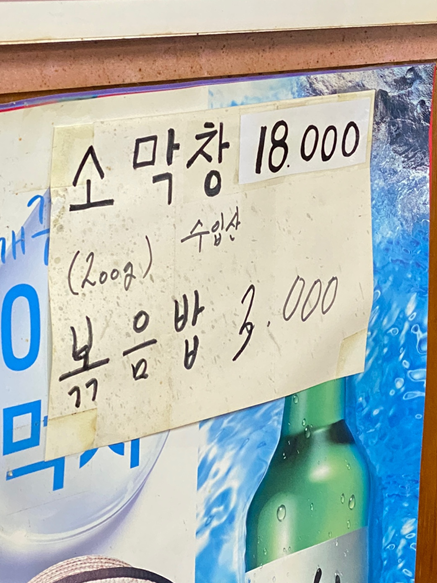 소 막창 18.000
(200g) 수입산
볶음밥 3.000